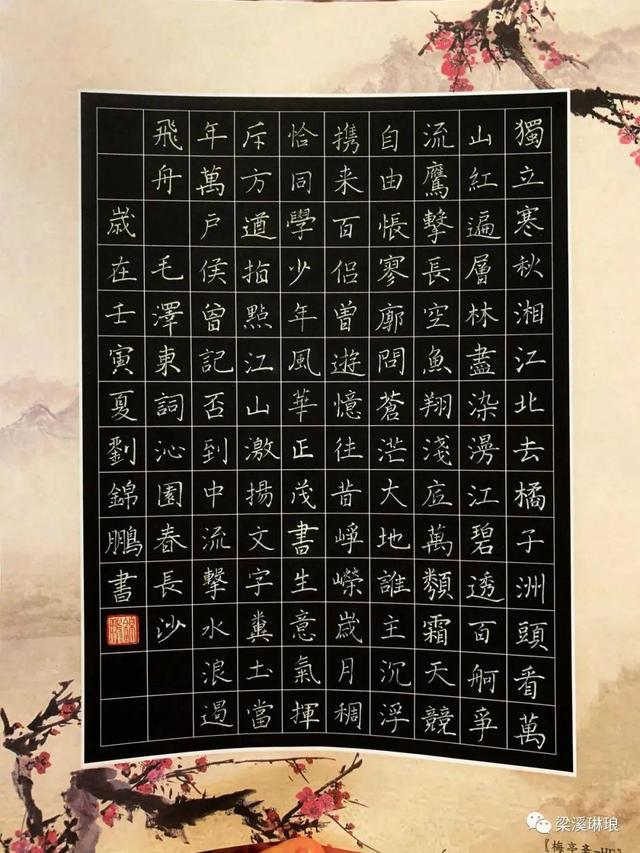 獨立寒秋湘江北去橘子洲頭看萬
山紅遍層林盡染漫江碧透百舸爭
流鷹擊長空魚翔淺底萬類霜天競
自由悵寥廓問蒼茫大地誰主沉浮
携来百侶曾遊憶往昔崢嶸歲月稠
恰同學少年風華正茂書生意氣揮
斥方遒指點江山激揚文字糞土當
年萬戶侯曾記否到中流擊水浪遏
飛舟 毛澤東詞沁園春長沙
歲在壬寅夏劉錦鵬書
梁溪琳琅